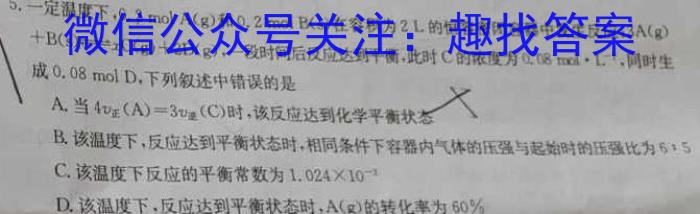 5. 一定温度下,
微信公众号关注：趣找答案
+B(
一段时间后反应达到平衡,此时C的浓度为0.08 mol·L⁻¹,同时生
成0.08 mol D,下列叙述中错误的是
A. 当4v正(A)=3v逆(C)时,该反应达到化学平衡状态
B. 该温度下,反应达到平衡状态时,相同条件下容器内气体的压强与起始时的压强比为6:5
C. 该温度下反应的平衡常数为1.024×10⁻²
D. 该温度下,反应达到平衡状态时,A(g)的转化率为60%